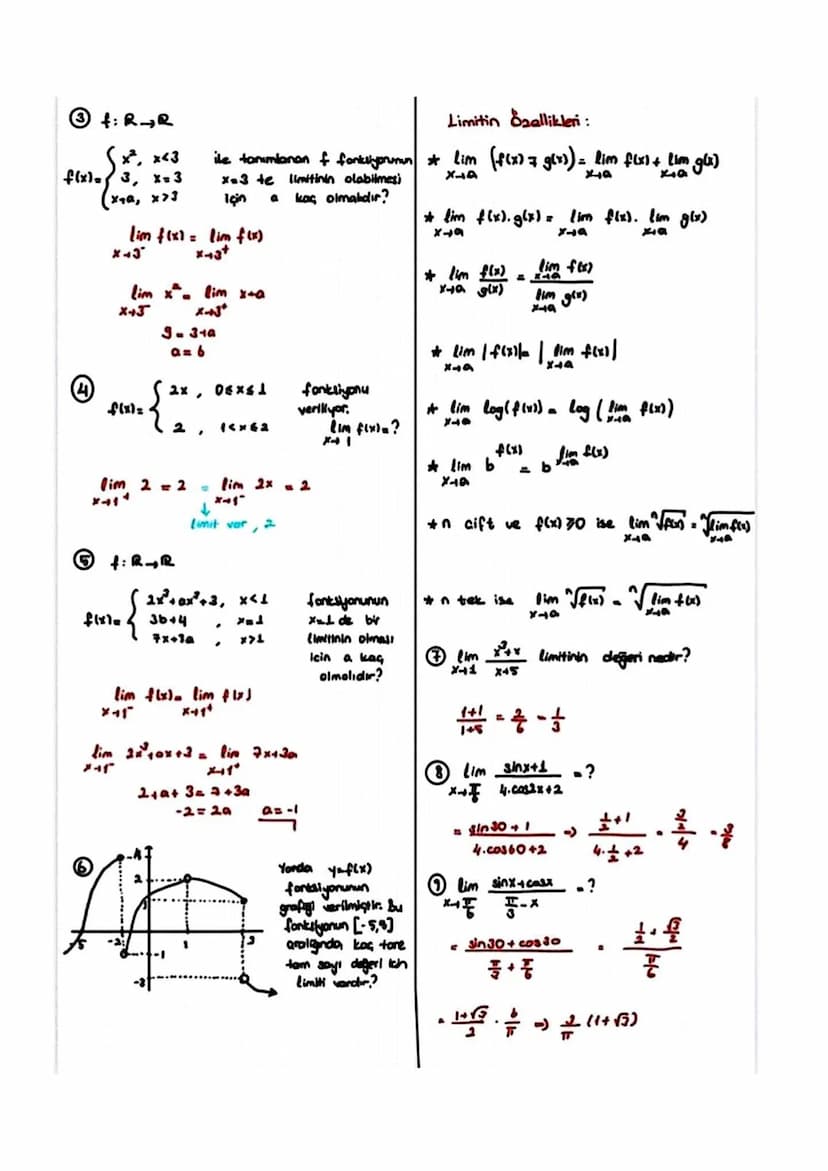 ③ f: R→R
f(x)= { x², x<3
3, x=3
x+a, x>3
ile tanımlanan f fonksiyonunun
x=3 te limitinin olabilmesi
için a kaç olmalıdır?
lim f(x) = lim f(x)
x→3⁻ x→3⁺
lim x² = lim x+a
x→3⁻ x→3⁺
9 = 3+a
a = 6
④ f(x)= { 2x, 0≤x≤1
2, 1<x≤2
fonksiyonu
veriliyor.
lim f(x)=?
x→1
lim 2 = 2 = lim 2x = 2
x→1⁺ x→1⁻
↓
limit var, 2
⑤ f: R→R
f(x)= { 2x³+ax²+3, x<1
3b+4, x=1
7x+3a, x>1
fonksiyonunun
x=1 de bir
limitinin olması
için a kaç
olmalıdır?
lim f(x) = lim f(x)
x→1⁻ x→1⁺
lim 2x³+ax+3 = lim 7x+3a
x→1⁻ x→1⁺
2+a+3 = 7+3a
-2 = 2a a=-1
⑥
4
2
1
-5 -2 1 3
-1
-3
Yanda y=f(x)
fonksiyonunun
grafiği verilmiştir. Bu
fonksiyonun
aralığında kaç tane
tam sayı değeri için
limiti vardır?
Limitin Özellikleri:
* lim (f(x) ∓ g(x)) = lim f(x) + lim g(x)
x→a x→a x→a
* lim f(x).g(x) = lim f(x). lim g(x)
x→a x→a x→a
* lim f(x)/g(x) = lim f(x) / lim g(x)
x→a x→a x→a
* lim |f(x)| = | lim f(x)|
x→a x→a
* lim log(f(x)) = log ( lim f(x))
x→a x→a
* lim b^f(x) = b^lim f(x)
x→a x→a
* n çift ve f(x)≥0 ise lim ⁿ√f(x) = ⁿ√lim f(x)
x→a x→a
* n tek ise lim ⁿ√f(x) = ⁿ√lim f(x)
x→a x→a
⑦ lim x²+x / x+5 limitinin değeri nedir?
x→1
1+1/1+5 = 2/6 = 1/3
⑧ lim sinx+1 / 4.cos2x+2 =?
x→π/6
= sin30+1 / 4.cos60+2 => 1/2+1 / 4.1/2+2 = 3/2 / 4 = 3/8
⑨ lim sinx+cosx / π/3-x =?
x→π/6
= sin30+cos30 / π/3+π/6 = 1/2+√3/2 / π/6
= 1+√3/2 . 6/π => 3/π (1+√3)